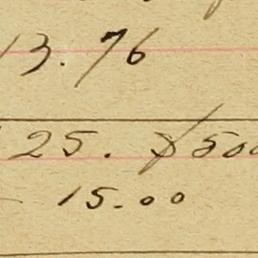 13.76
25. $500
15.00